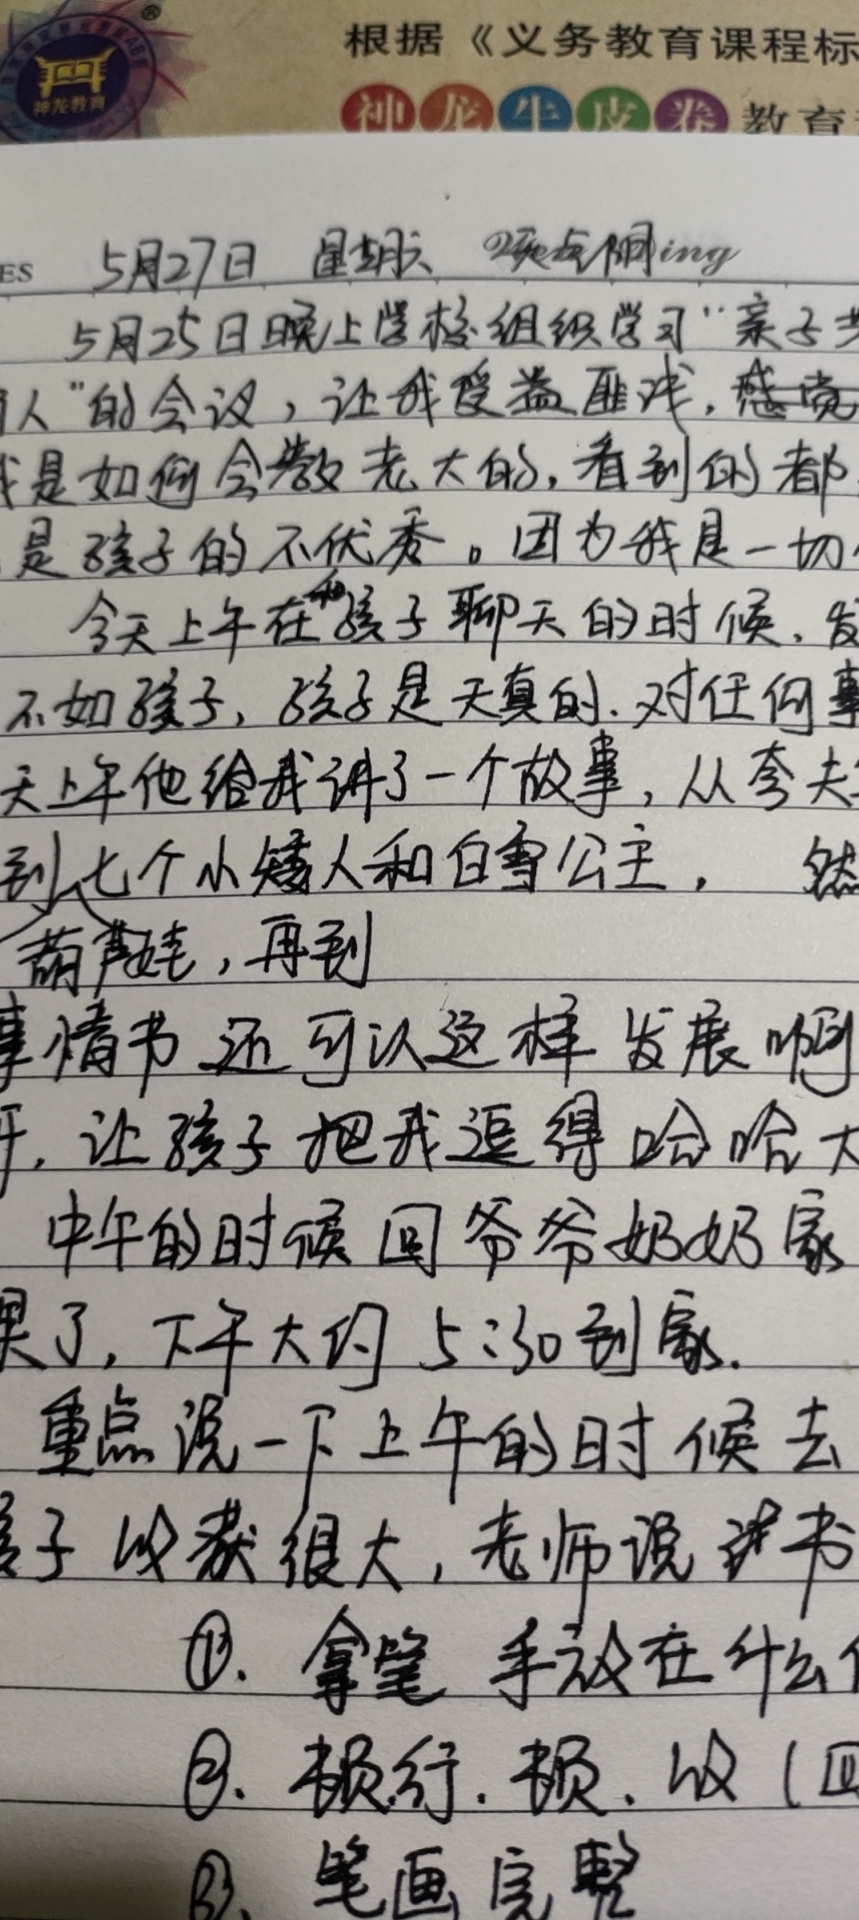 神龙教育
根据《义务教育课程标
神龙牛皮卷 教育
ES 5月27日 星期六 ing
5月25日晚上学校组织学习“亲子共
人”的会议，让我受益匪浅，感觉
我是如何会教老大的，看到的都
是孩子的不优秀。因为我是一切
今天上午在和孩子聊天的时候，发
不如孩子，孩子是天真的．对任何事
天上午他给我讲了一个故事，从夸父
到七个小矮人和白雪公主， 然
葫芦娃，再到
事情书还可以这样发展啊
让孩子把我逗得哈哈大
中午的时候回爷爷奶奶家
果了，下午大约5:30到家．
重点说一下上午的时候去
孩子收获很大，老师说 书
①. 拿笔 手放在什么位
②. 顿.行.顿.收(回
③. 笔画完整